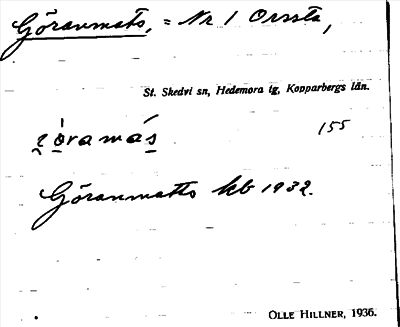 Göranmats, = Nr 1 Orssta,
St. Skedvi sn, Hedemora tg, Kopparbergs län.
155
Göranmatts kb 1932.
OLLE HILLNER, 1936.